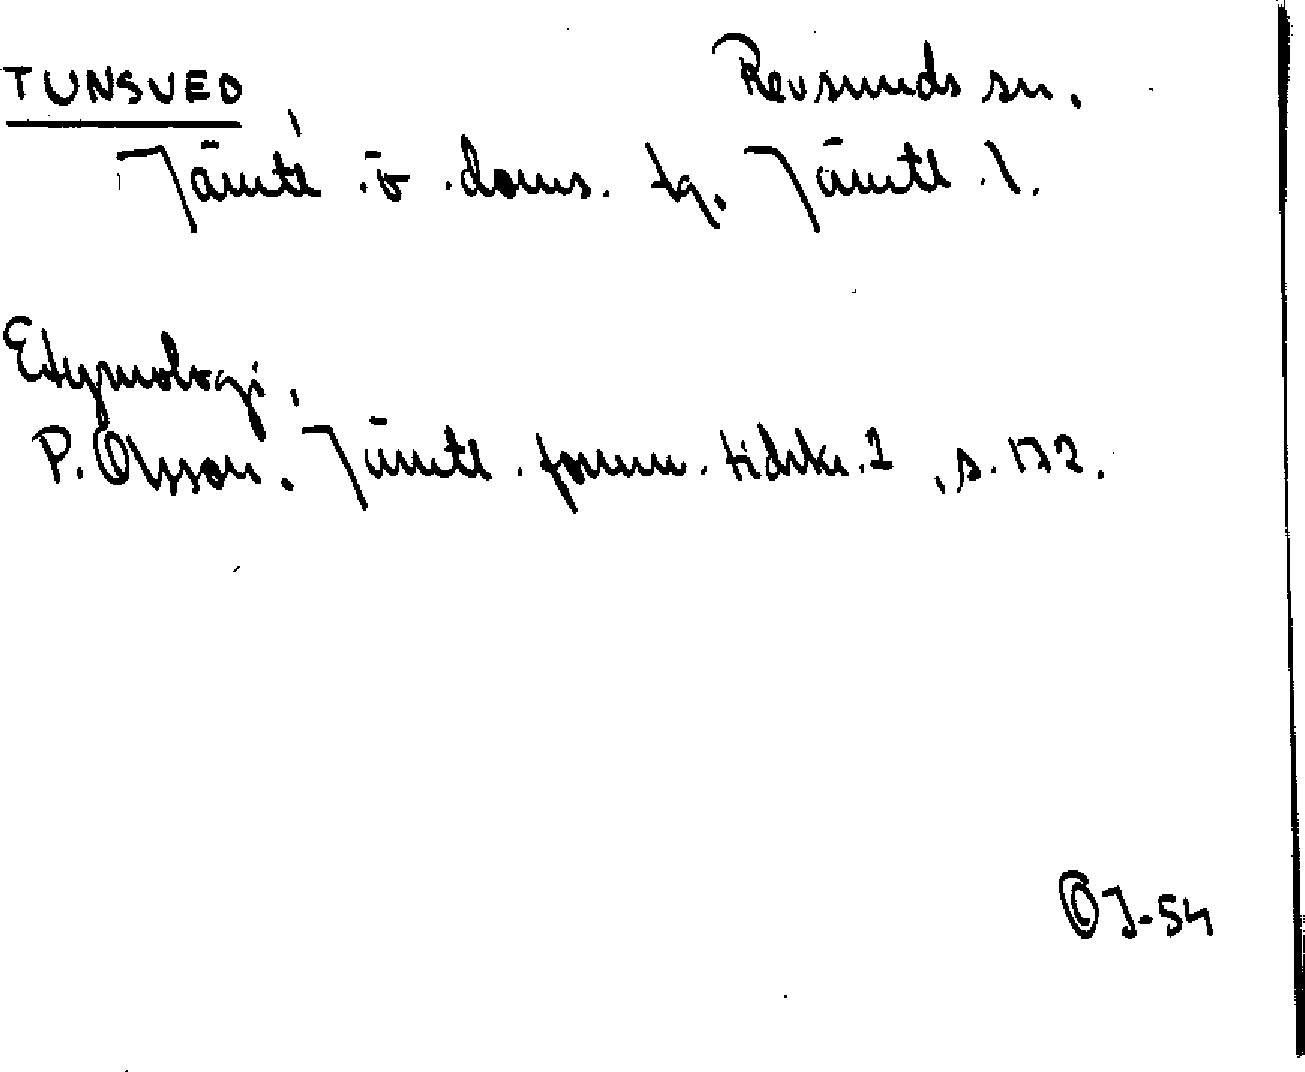 TUNSVED Revsunds sn.
Jämtl. ö. doms. tg. Jämtl. l.
Etymologi.
P. Olsson. Jämtl. fornm. tidskr. 1, s. 172.
J-54